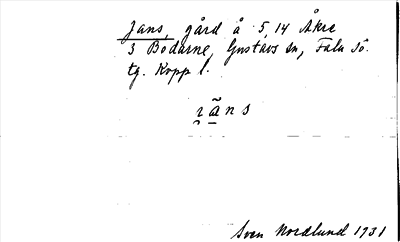 Jans, gård å 5,14 Åkre
3 Bodarne, Gustavs sn, Falu sö.
tg. Kopp l.
i̯ãns
Sven Nordlund 1931